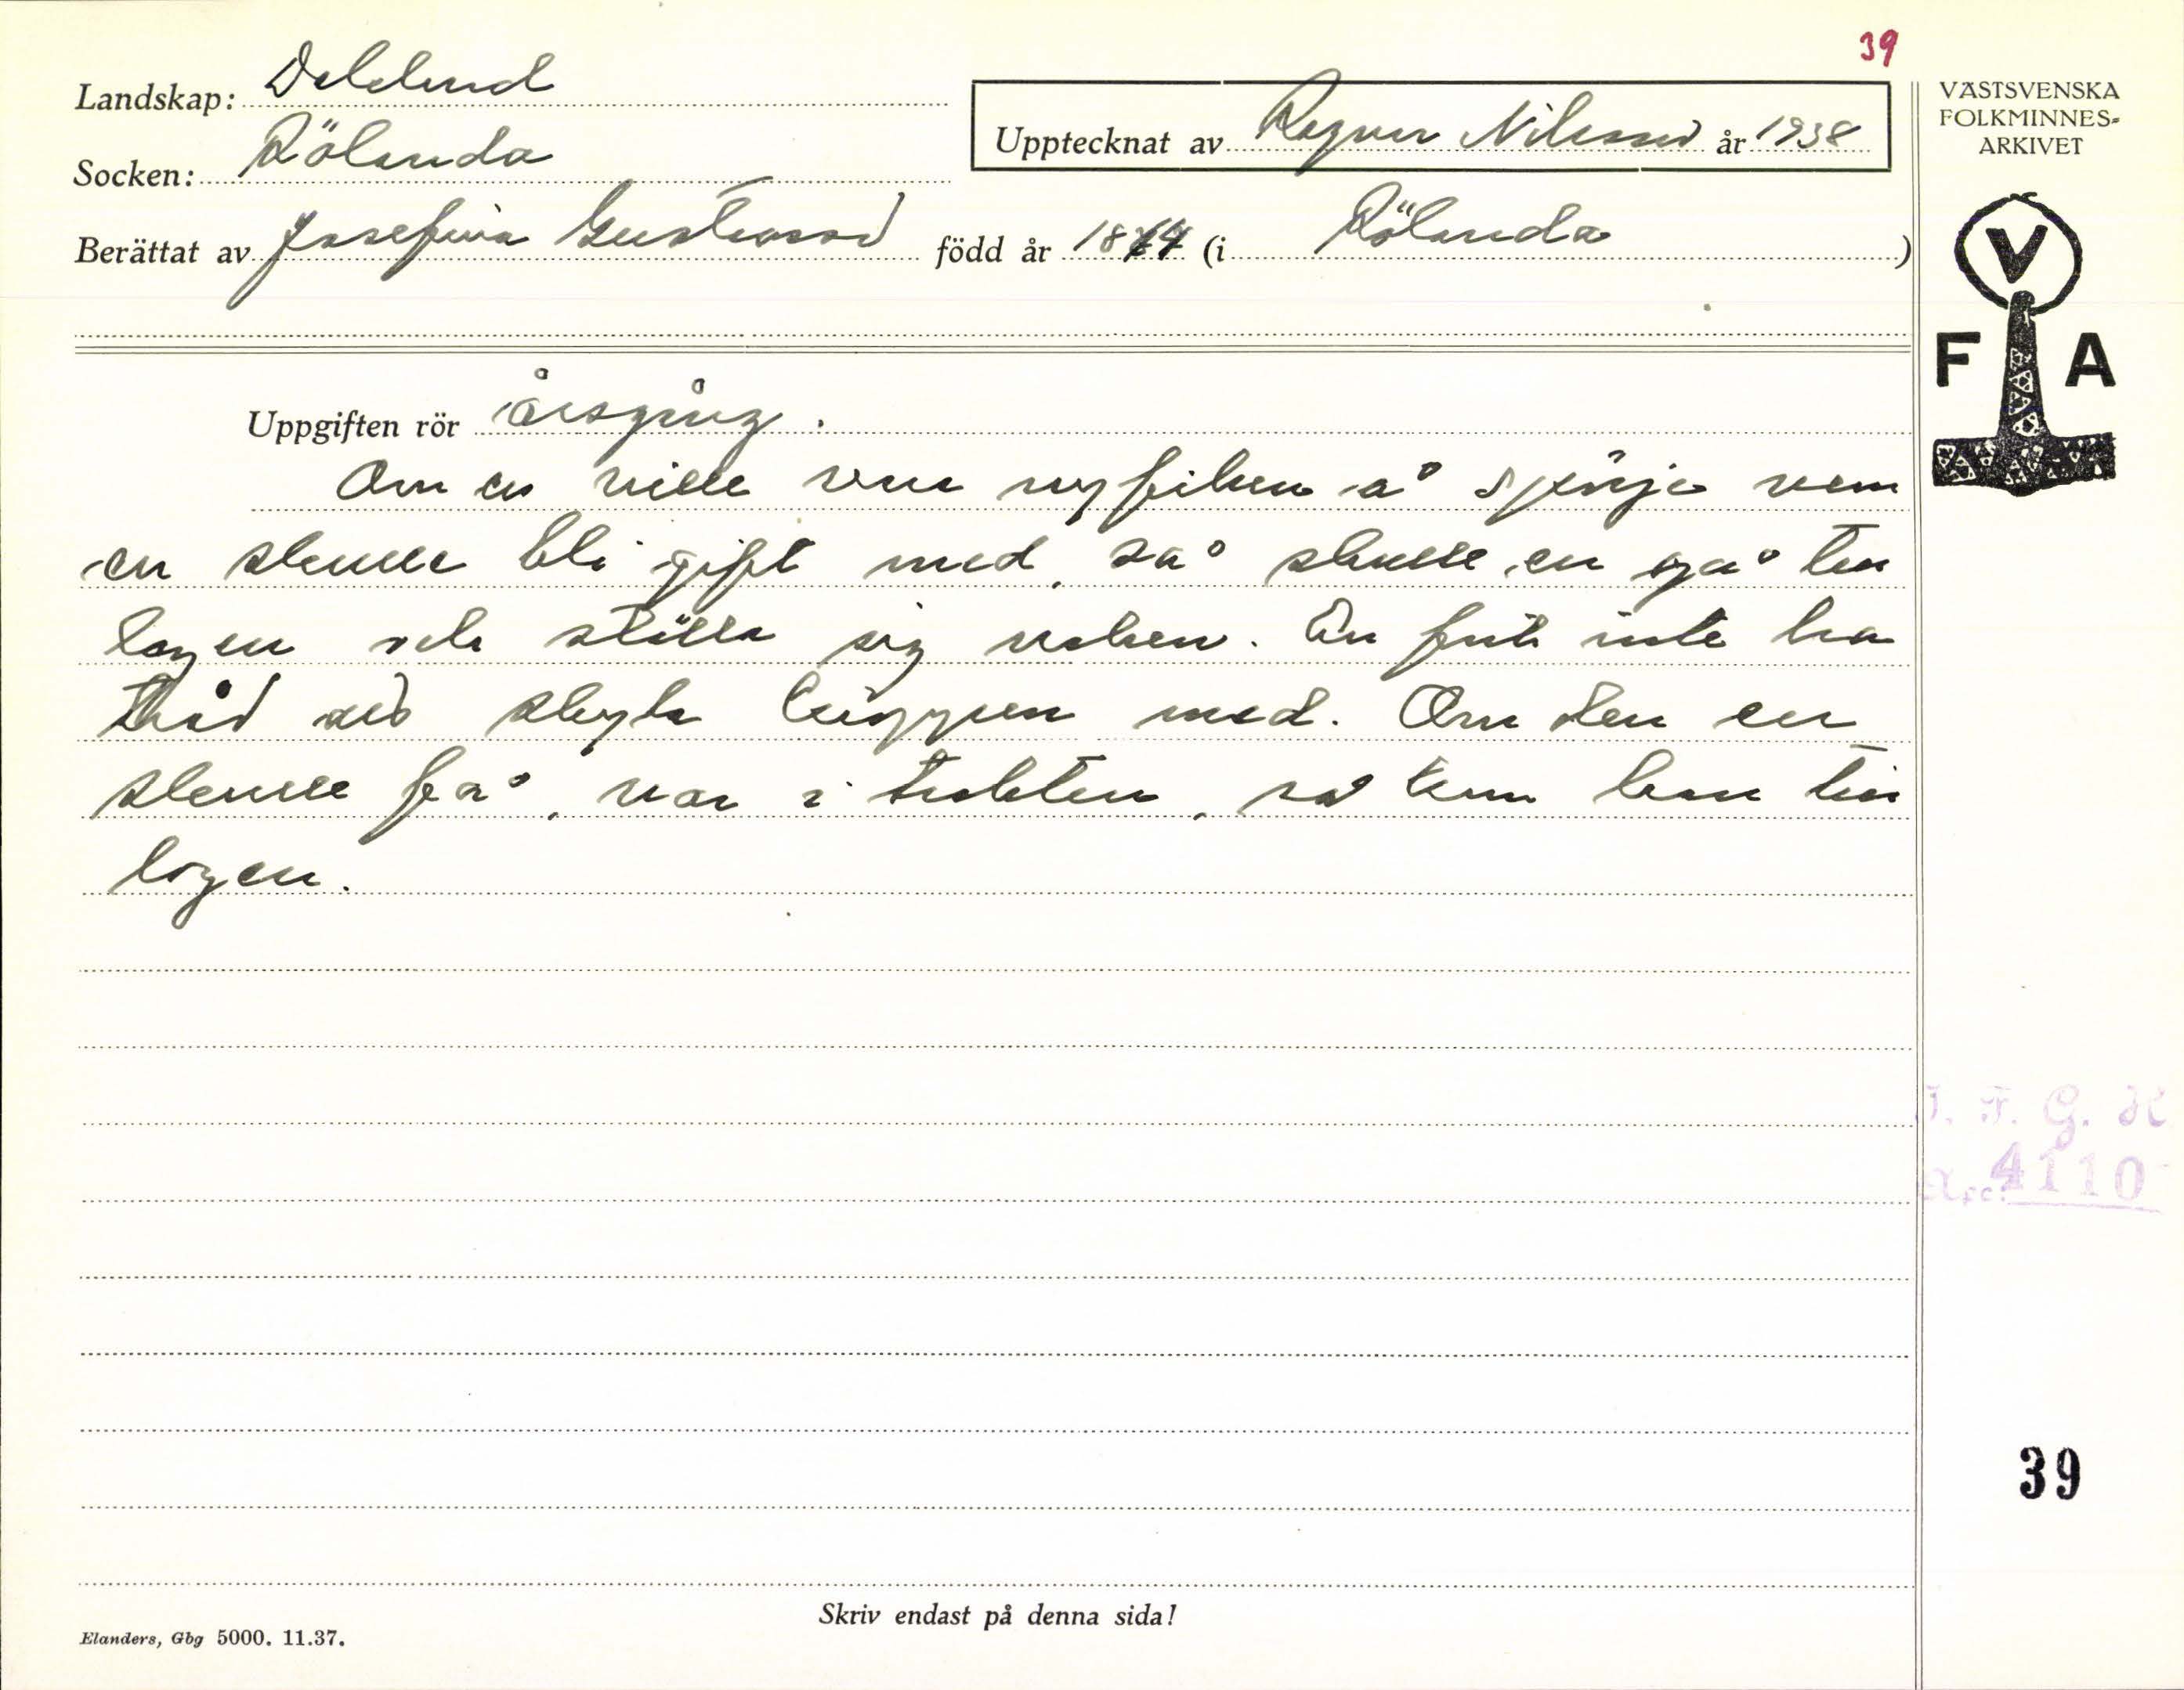 39
Landskap: Dalsland
Socken: Rölanda
Upptecknat av Ragnar Nilsson år 1938
Berättat av Josefina Gustavsson född år 1874 (i Rölanda)
VÄSTSVENSKA
FOLKMINNES-
ARKIVET
V
F A
Uppgiften rör årsgång.
Om en ville vara nyfiken å spörja vem
en skulle bli gift med, så skulle en gå te
logen och ställa sig naken. En fick inte ha
tråd att skyla kroppen med. Om den en
skulle få, var i trakten, så kom han te
logen.
I. F. G. H.
Acc. 4110
39
Skriv endast på denna sida!
Elanders, Gbg 5000. 11.37.